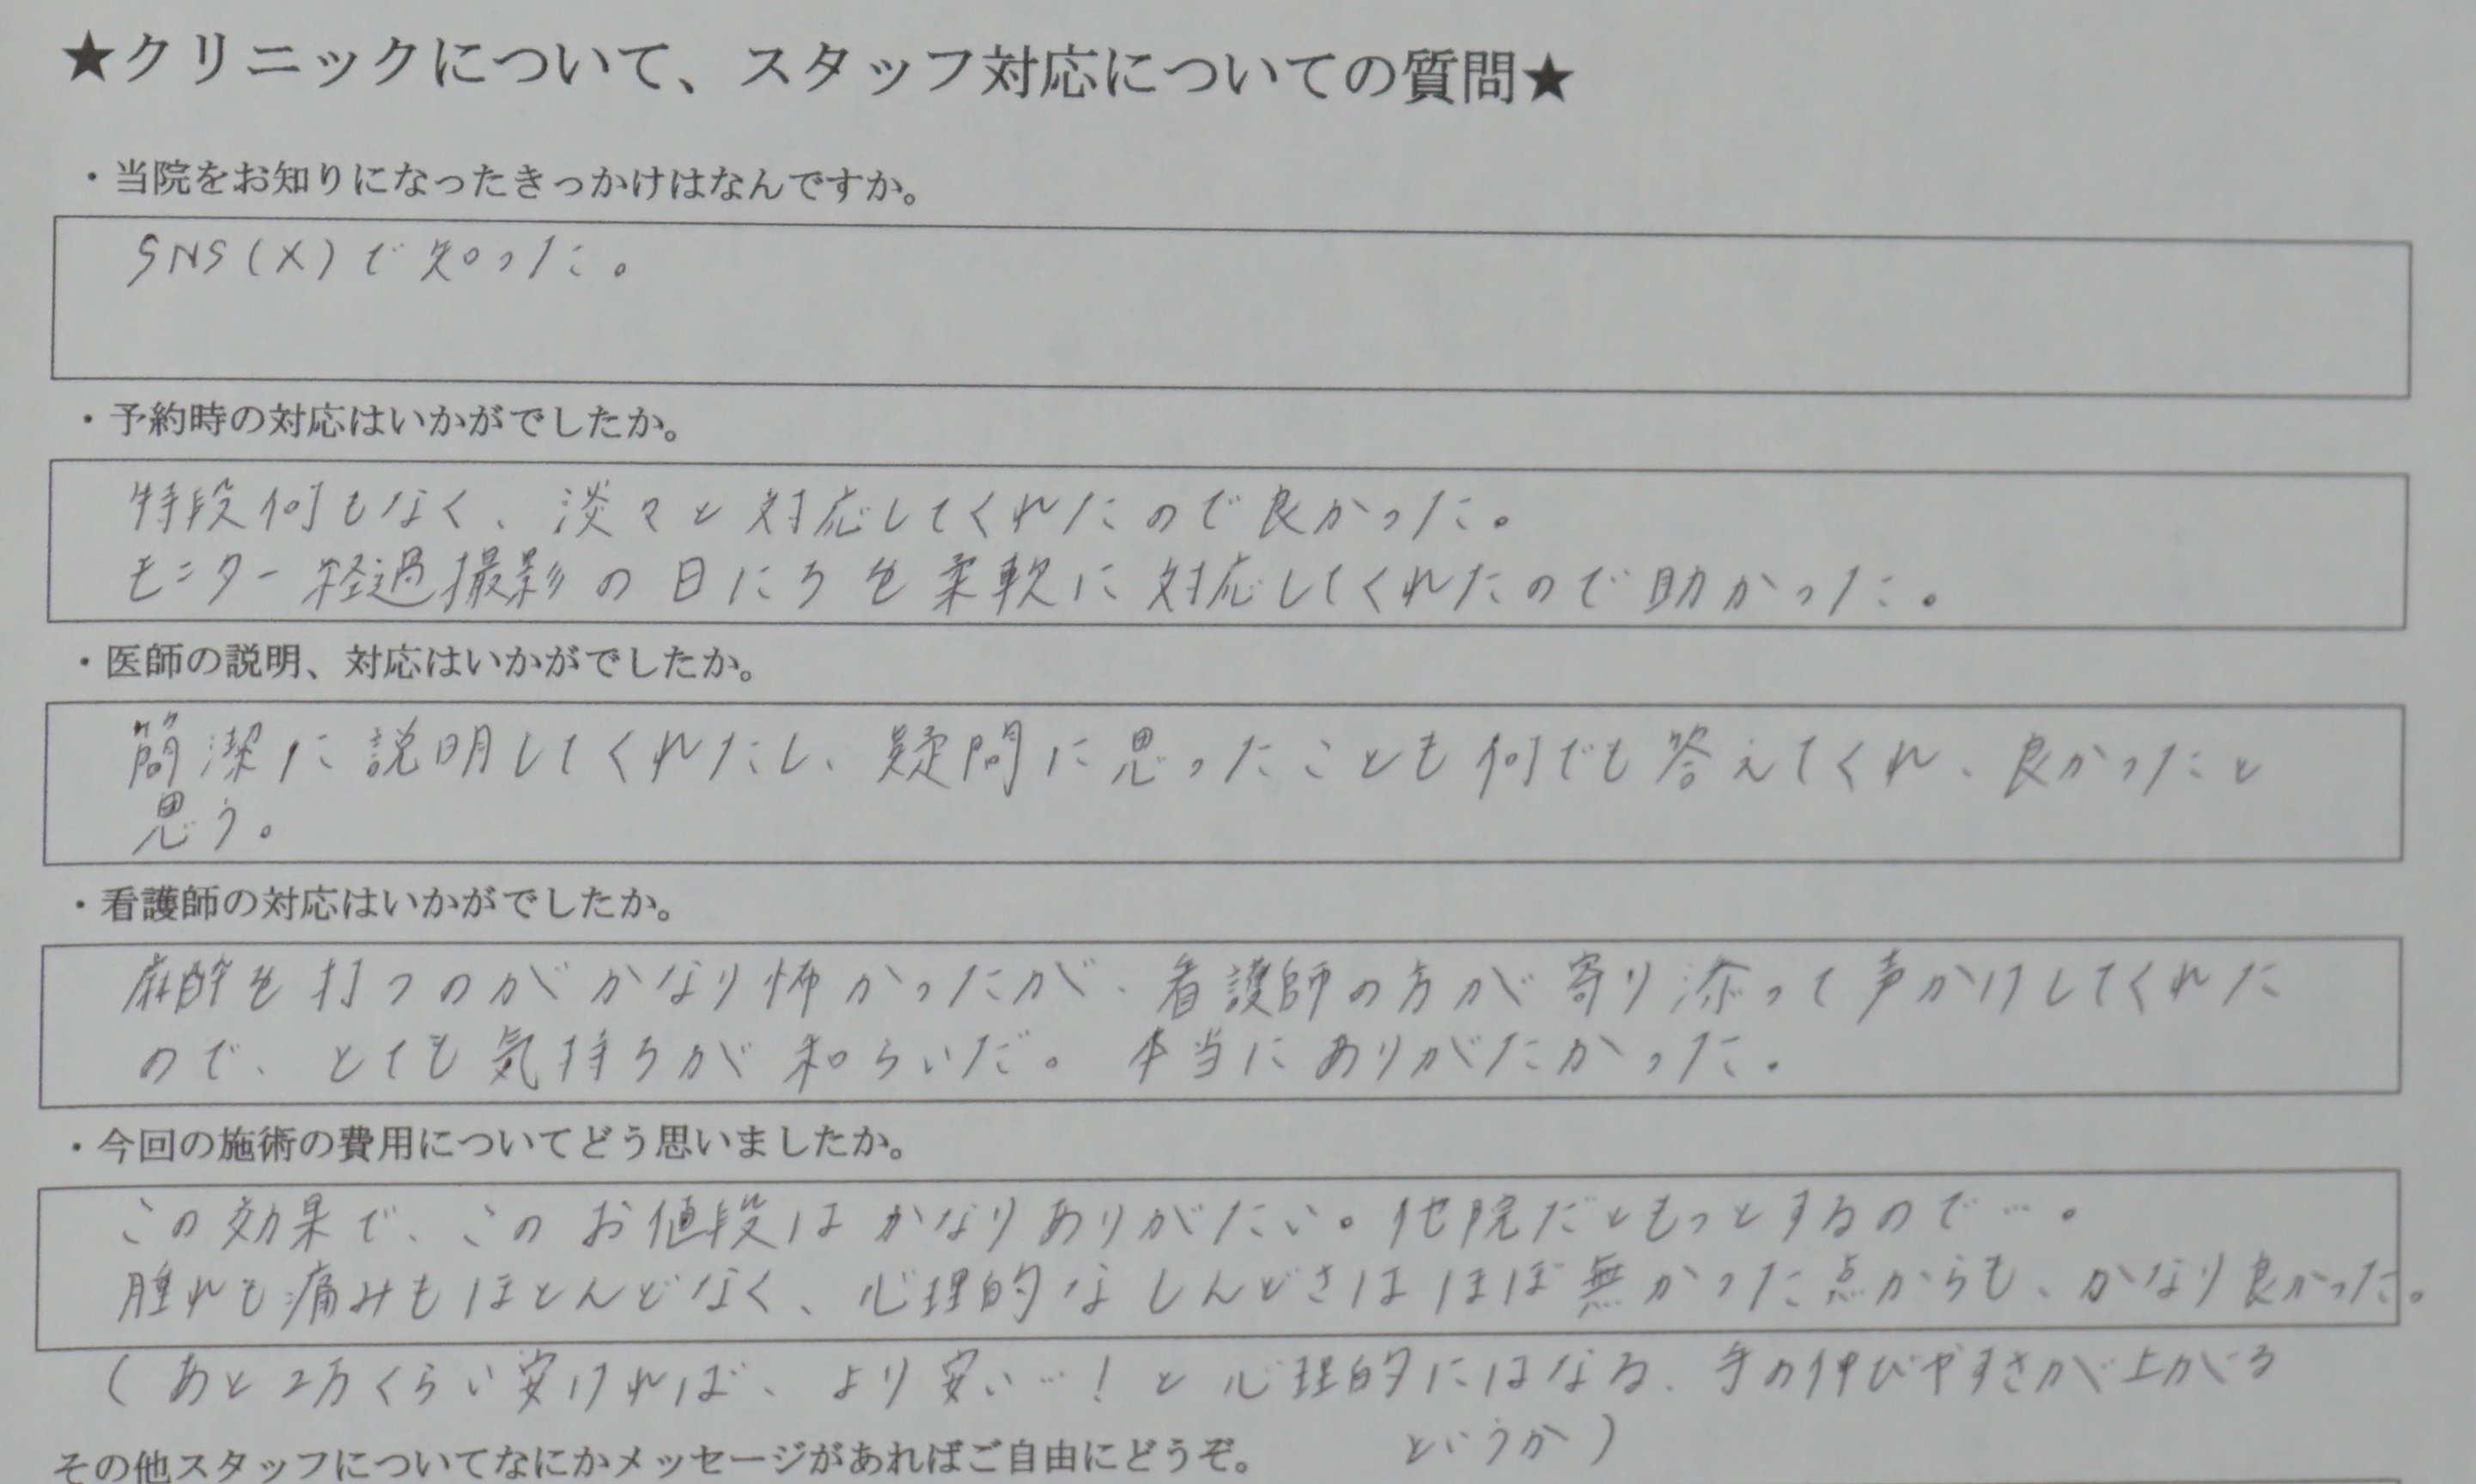 ★クリニックについて、スタッフ対応についての質問★
・当院をお知りになったきっかけはなんですか。
SNS(X)で知った。
・予約時の対応はいかがでしたか。
特段何もなく、淡々と対応してくれたので良かった。
モニター経過撮影の日にちを柔軟に対応してくれたので助かった。
・医師の説明、対応はいかがでしたか。
簡潔に説明してくれたし、疑問に思ったことも何でも答えてくれ、良かったと
思う。
・看護師の対応はいかがでしたか。
麻酔を打つのがかなり怖かったが、看護師の方が寄り添って声かけしてくれた
ので、とても気持ちが和らいだ。本当にありがたかった。
・今回の施術の費用についてどう思いましたか。
この効果で、このお値段はかなりありがたい。他院だともっとするので…。
腫れも痛みもほとんどなく、心理的なしんどさはほぼ無かった点からも、かなり良かった。
(あと2万くらい安ければ、より安い…!と心理的にはなる、手の伸びやすさが上がる
というか)
その他スタッフについてなにかメッセージがあればご自由にどうぞ。